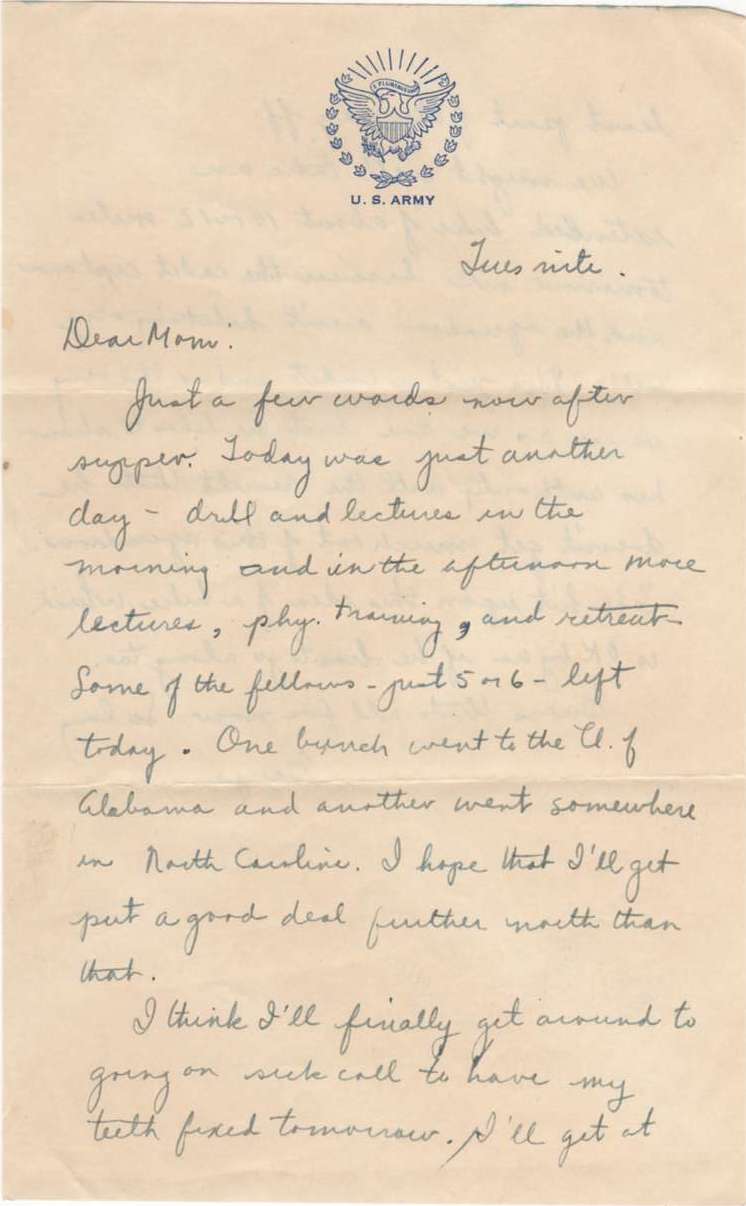 E PLURIBUS UNUM
U. S. ARMY
Tues nite.
Dear Mom:
Just a few words now after
supper. Today was just another
day - drill and lectures in the
morning and in the afternoon more
lectures, phy. training, and retreat
Some of the fellows - just 5 or 6 - left
today. One bunch went to the U. of
Alabama and another went somewhere
in North Carolina. I hope that I'll get
put a good deal further north than
that.
I think I'll finally get around to
going on sick call to have my
teeth fixed tomorrow. I'll get at